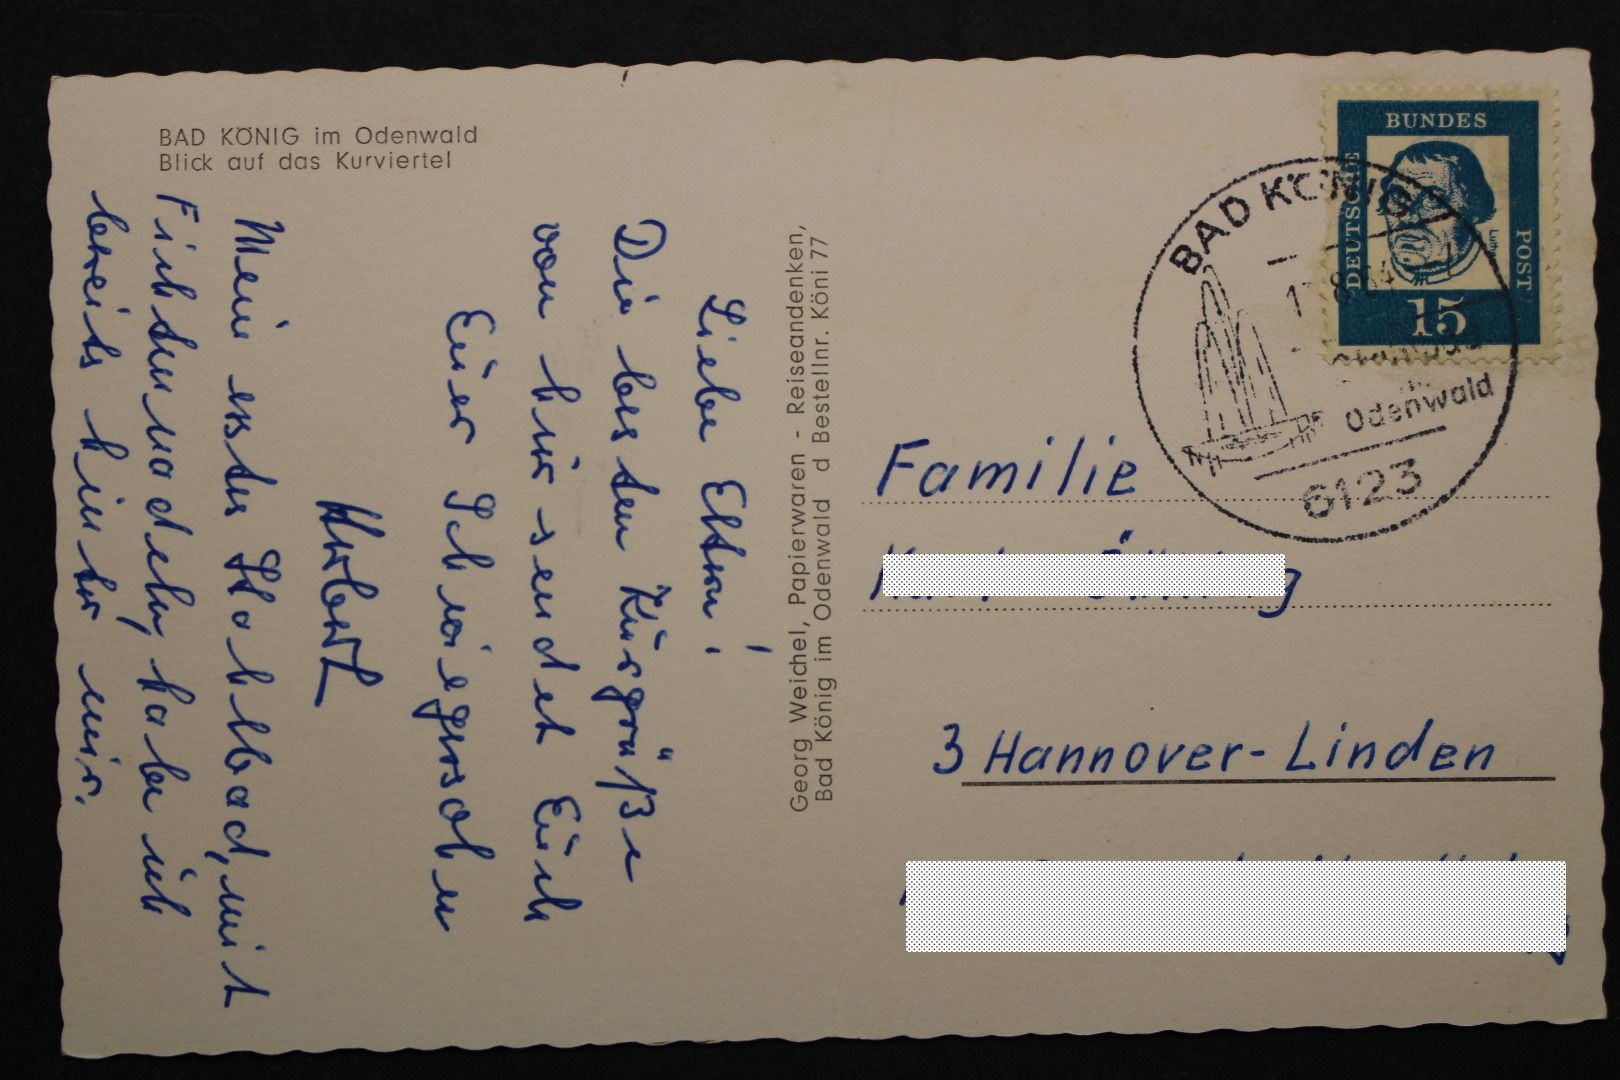 BAD KÖNIG im Odenwald
Blick auf das Kurviertel
Liebe Eltern!
Die besten Kurgrüße
von hier sendet Euch
Euer Schwiegersohn
Herbert
Mein erstes Stahlbad, mit
Fichtennadeln, habe ich
bereits hinter mir.
Georg Weichel, Papierwaren - Reiseandenken,
Bad König im Odenwald d Bestellnr. Köni 77
DEUTSCHE
BUNDES
POST
Luther
15
BAD KÖNIG
8.64
Odenwald
6123
Familie
3 Hannover-Linden